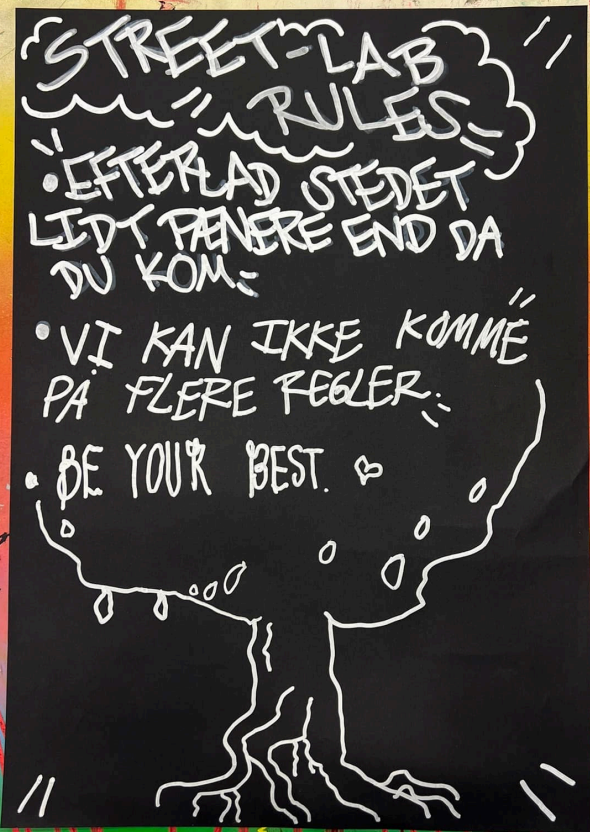 STREET-LAB
RULES
• EFTERLAD STEDET
LIDT PÆNERE END DA
DU KOM.
• VI KAN IKKE KOMME
PÅ FLERE REGLER.
• BE YOUR BEST. ♡